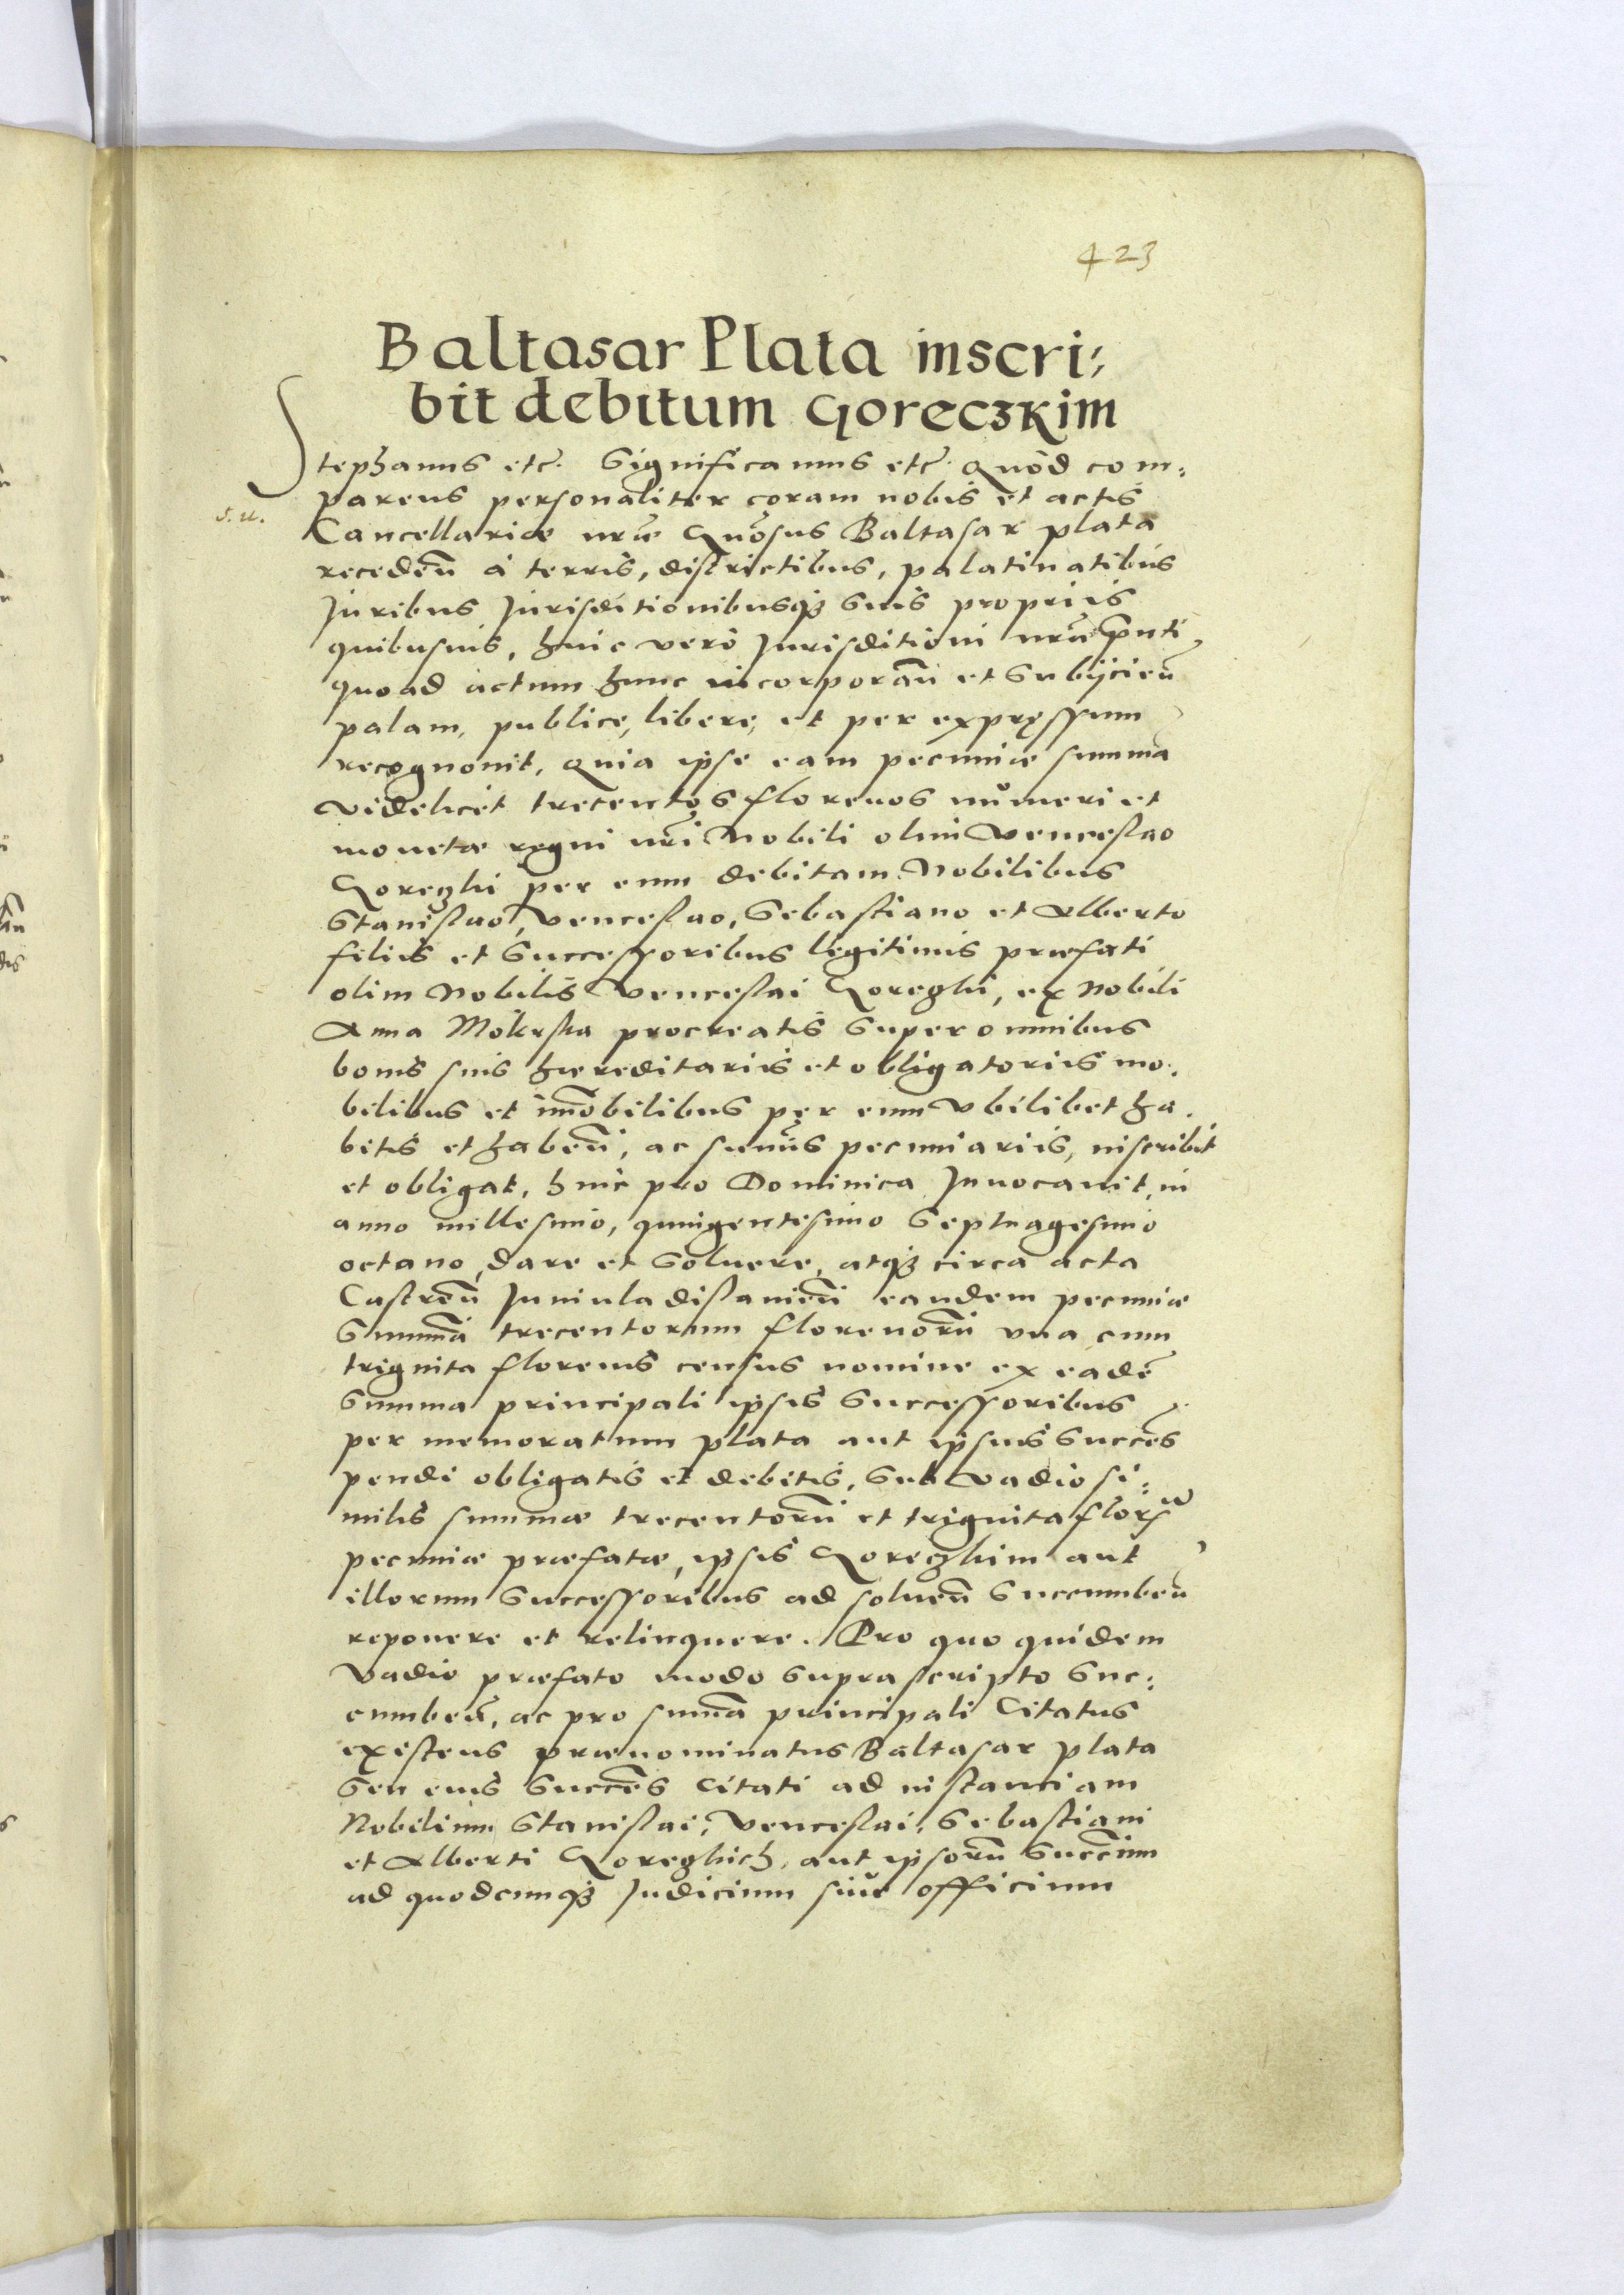 423
Baltasar Plata inscri,
bit debitum Goreczkim
Stephanus etc̃. Significamus etc̃. Quod com,
parens personaliter coram nobis et actis
s. u.
Cancellariæ nr̃æ Gn̄osus Baltasar plata
receden̄ à terris, districtibus, palatinatibus
Juribus Jurisditionibusq3 suis propriis
quibusuis, huic verò Jurisditioni nr̃æ p̃nti
quo ad actum hunc incorporan̄ et subijcien̄
palam, publice, libere, et per expręssum
recognouit, quia ipse eam pecuniæ summā
videlicet trecentos florenos numeri et
monetæ regni nr̃i Nobili olim Venceslao
Goreczki per eum debitam Nobilibus
Stanislao, Venceslao, Sebastiano et Alberto
filiis et Successoribus legitimis præfati
olim Nobilis Venceslai Goreczki, ex Nobili
Anna Mokrska procreatis super omnibus
bonis suis hæreditariis et obligatoriis mo,
bilibus et im̄obilibus per eum vbilibet ha,
bitis et haben̄, ac sum̄is pecuniariis, inscribit
et obligat, hinc pro Dominica Inuocauit, in
anno millesimo, quingentesimo Septuagesimo
octauo, dare et soluere, atq3 circa acta
Castren̄ Juniuladislauien̄ eandem pecuniæ
Summā trecentorum florenorū vna cum
triginta florenis census nomine ex eadē
summa principali ipsis Successoribus
per memoratum plata aut ipsius Succes̄
pendi obligatis et debitis, sub vadio si,
milis summæ trecentorū et triginta flor̄
pecuniæ præfatæ, ipsis Goreczkim aut
illorum Successoribus ad soluen̄ succumben̄
reponere et relinquere. Pro quo quidem
vadio præfato modo suprascripto suc,
cumben̄, ac pro sum̄a principali Citatus
existens prænominatus Baltasar plata
seu eius succes̄ Citati ad instanciam
Nobilium Stanislai, Venceslai, Sebastiani
et Alberti Goreczkich, aut ipsorū Succ̄um
ad quodcunq3 Judicium siue officium